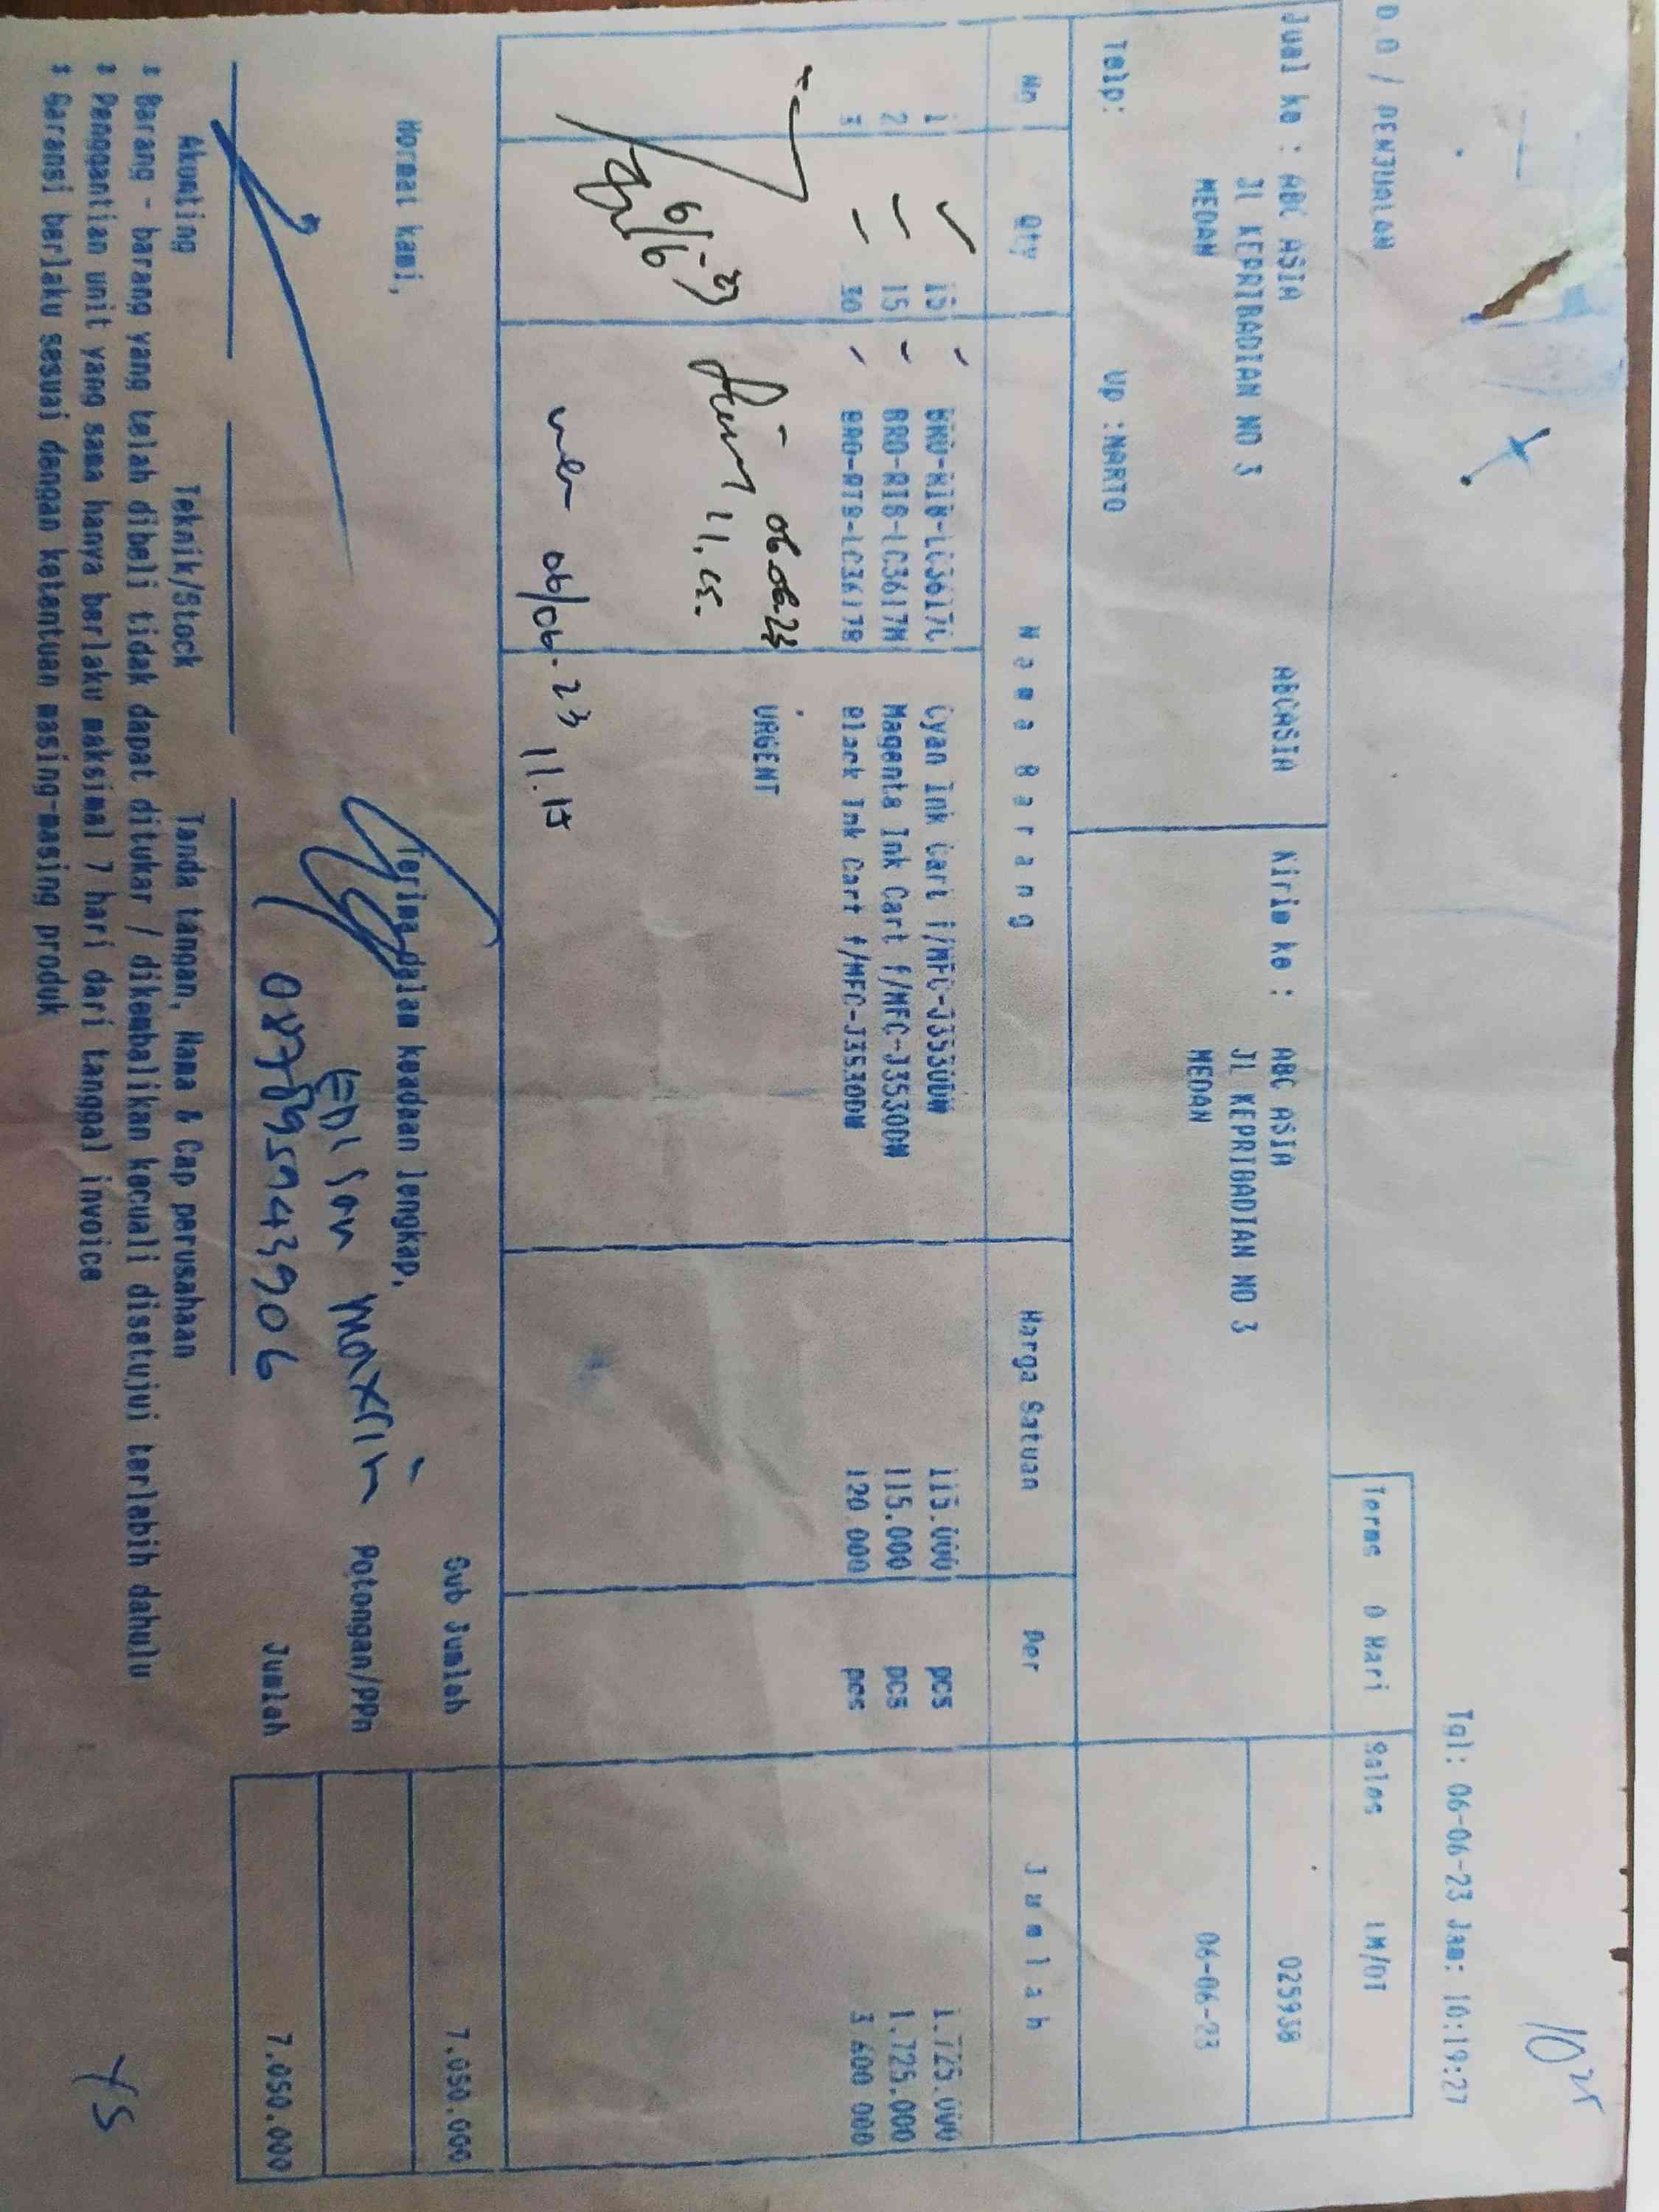 10 25
Tgl: 06-06-23 Jam: 10:19:27
D.O / PENJUALAN
Terms 0 Hari Sales LM/OT
Jual ke : ABC ASIA ABCASIA Kirim ke : ABC ASIA 025938
JL KEPRIBADIAN NO 3 JL KEPRIBADIAN NO 3
MEDAN MEDAN 06-06-23
Telp: Up :NARTO
No Qty Nama Barang Harga Satuan Per Jumlah
1 15 BRO-RIB-LC3617C Cyan Ink Cart f/MFC-J3530DW 115.000 pcs 1.725.000
2 15 BRO-RIB-LC3617M Magenta Ink Cart f/MFC-J3530DW 115.000 pcs 1.725.000
3 30 BRO-RIB-LC3617B Black Ink Cart f/MFC-J3530DW 120.000 pcs 3.600.000
06.06.23 URGENT
6/6-23 11.15.
06/06-23 11.15
Sub Jumlah 7.050.000
Hormat kami, Terima dalam keadaan lengkap,
EDISON MAXRIN Potongan/PPn
087889594 43906 Jumlah 7.050.000
Akunting Teknik/Stock Tanda tangan, Nama & Cap perusahaan
* Barang - barang yang telah dibeli tidak dapat ditukar / dikembalikan kecuali disetujui terlebih dahulu
* Penggantian unit yang sama hanya berlaku maksimal 7 hari dari tanggal invoice
* Garansi berlaku sesuai dengan ketentuan masing-masing produk
YS